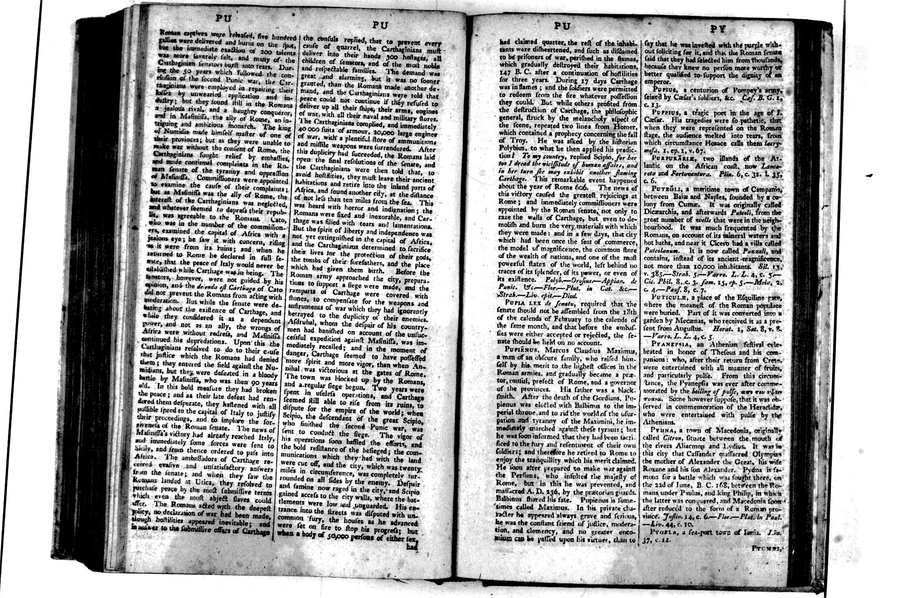 PU
PU
Roman captives were released, five hundred
gallies were delivered and burns on the spot,
but the immediate exaction of 200 talents
was more severely felt, and many of the
Carthaginian senators burst into tears. Dur-
ing the 50 years which followed the con-
clusion of the second Punic war, the Car-
thaginians were employed in repairing their
losses by unwearied application and in-
dustry; but they found still in the Romans
a jealous rival, and a haughty conqueror,
and in Masinissa, the ally of Rome, an in-
triguing and ambitious monarch. The king
of Numidia made himself master of one of
their provinces; but as they were unable to
make war without the consent of Rome, the
Carthaginians sought relief by embassies,
and made continual complaints in the Ro-
man senate of the tyranny and oppression
of Masinissa. Commissioners were appointed
to examine the cause of their complaints;
but as Masinissa was the ally of Rome, the
interest of the Carthaginians was neglected,
and whatever seemed to depress their repub-
lic, was agreeable to the Romans. Cato,
who was in the number of the commission-
ers, examined the capital of Africa with a
jealous eye; he saw it with concern, rising
as it were from its ruins; and when he
returned to Rome he declared in full se-
nate, that the peace of Italy would never be
established while Carthage was in being. The
senators, however, were not guided by his
opinion, and the delenda est Carthago of Cato
did not prevent the Romans from acting with
moderation. But while the senate were de-
bating about the existence of Carthage, and
while they considered it as a dependant
power, and not as an ally, the wrongs of
Africa were without redress, and Masinissa
continued his depredations. Upon this the
Carthaginians resolved to do to their cause
that justice which the Romans had denied
them; they entered the field against the Nu-
midians, but they were defeated in a bloody
battle by Masinissa, who was then 90 years
old. In this bold measure they had broken
the peace; and as their late defeat had ren-
dered them desperate, they hastened with all
possible speed to the capital of Italy to justify
their proceedings, and to implore the for-
giveness of the Roman senate. The news of
Masinissa's victory had already reached Italy,
and immediately some forces were sent to
Sicily, and from thence ordered to pass into
Africa. The ambassadors of Carthage re-
ceived evasive and unsatisfactory answers
from the senate; and when they saw the
Romans landed at Utica, they resolved to
purchase peace by the most submissive terms
which even the most abject slaves could
offer. The Romans acted with the deepest
policy, no declaration of war had been made,
though hostilities appeared inevitable; and
in answer to the submissive offers of Carthage
the consuls replied, that to prevent every
cause of quarrel, the Carthaginians must
deliver into their hands 300 hostages, all
children of senators, and of the most noble
and respectable families. The demand was
great and alarming, but it was no sooner
granted, than the Romans made another de-
mand, and the Carthaginians were told that
peace could not continue if they refused to
deliver up all their ships, their arms, engines
of war, with all their naval and military stores.
The Carthaginians complied, and immediately
40 000 suits of armour, 20,000 large engines
of war, with a plentiful store of ammunitions
and missile weapons were surrendered. After
this duplicity had succeeded, the Romans laid
open the final resolutions of the senate, and
the Carthaginians were then told that, to
avoid hostilities, they must leave their ancient
habitations and retire into the inland parts of
Africa, and found another city, at the distance
of not less than ten miles from the sea. This
was heard with horror and indignation; the
Romans were fixed and inexorable, and Car-
thage was filled with tears and lamentations.
But the spirit of liberty and independence was
not yet extinguished in the capital of Africa,
and the Carthaginians determined to sacrifice
their lives for the protection of their gods,
the tombs of their forefathers, and the place
which had given them birth. Before the
Roman army approached the city, prepara-
tions to support a siege were made, and the
ramparts of Carthage were covered with
stones, to compensate for the weapons and
instruments of war which they had ignorantly
betrayed to the duplicity of their enemies.
Asdrubal, whom the despair of his country-
men had banished on account of the unsuc-
cessful expedition against Masinissa, was im-
mediately recalled; and in the moment of
danger, Carthage seemed to have possessed
more spirit and more vigor, than when An-
nibal was victorious at the gates of Rome.
The town was blocked up by the Romans,
and a regular siege begun. Two years were
spent in useless operations, and Carthage
seemed still able to rise from its ruins, to
dispute for the empire of the world; when
Scipio, the descendant of the great Scipio,
who finished the second Punic war, was
sent to conduct the siege. The vigor of
his operations soon baffled the efforts, and
the bold resistance of the besieged; the com-
munications which they had with the land
were cut off, and the city, which was twenty
miles in circumference, was completely sur-
rounded on all sides by the enemy. Despair
and famine now raged in the city, and Scipio
gained access to the city walls, where the bat-
tlements were low and unguarded. His en-
trance into the streets was disputed with un-
common fury, the houses as he advanced
were set on fire to stop his progress; but
when a body of 50,000 persons of either sex,
had
PU
PY
had claimed quarter, the rest of the inhabi-
tants were disheartened, and such as disdained
to be prisoners of war, perished in the flames,
which gradually destroyed their habitations,
147 B. C. after a continuation of hostilities
for three years. During 17 days Carthage
was in flames; and the soldiers were permitted
to redeem from the fire whatever possession
they could. But while others profited from
the destruction of Carthage, the philosophic
general, struck by the melancholy aspect of
the scene, repeated two lines from Homer,
which contained a prophecy concerning the fall
of Troy. He was asked by the historian
Polybius, to what he then applied his predic-
tion? To my country, replied Scipio, for her
too I dread the vicissitude of human affairs, and
in her turn she may exhibit another flaming
Carthage. This remarkable event happened
about the year of Rome 606. The news of
this victory caused the greatest rejoicings at
Rome; and immediately commissioners were
appointed by the Roman senate, not only to
raze the walls of Carthage, but even to de-
molish and burn the very materials with which
they were made; and in a few days, that city
which had been once the seat of commerce,
the model of magnificence, the common store
of the wealth of nations, and one of the most
powerful states of the world, left behind no
traces of its splendor, of its power, or even of
its existence. Polyb.—Orosius.—Appian. de
Punic. &c.—Flor.—Plut. in Cat. &c.—
Strab.—Liv. epit.—Diod.
PUPIA LEX de senatu, required that the
senate should not be assembled from the 18th
of the calends of February to the calends of
the same month, and that before the embas-
sies were either accepted or rejected, the se-
nate should be held on no account.
PUPIENUS, Marcus Claudius Maximus,
a man of an obscure family, who raised him-
self by his merit to the highest offices in the
Roman armies, and gradually became a præ-
tor, consul, prefect of Rome, and a governor
of the provinces. His father was a black-
smith. After the death of the Gordians, Pu-
pienus was elected with Balbinus to the im-
perial throne, and to rid the world of the usur-
pation and tyranny of the Maximini, he im-
mediately marched against these tyrants; but
he was soon informed that they had been sacri-
ficed to the fury and resentment of their own
soldiers; and therefore he retired to Rome to
enjoy the tranquillity which his merit claimed.
He soon after prepared to make war against
the Persians, who insulted the majesty of
Rome, but in this he was prevented, and
massacred A. D. 236, by the prætorian guards.
Balbinus shared his fate. Pupienus is some-
times called Maximus. In his private cha-
racter he appeared always grave and serious,
he was the constant friend of justice, modera-
tion, and clemency, and no greater enco-
mium can be passed upon his virtues, than to
say that he was invested with the purple with-
out soliciting for it, and that the Roman senate
said that they had selected him from thousands,
because they knew no person more worthy or
better qualified to support the dignity of an
emperor.
PUPIUS, a centurion of Pompey's army,
seized by Cæsar's soldiers, &c. Cæs. B. G. 1,
c. 13.
PUPPIUS, a tragic poet in the age of J.
Cæsar. His tragedies were so pathetic, that
when they were represented on the Roman
stage, the audience melted into tears, from
which circumstance Horace calls them lacry-
mosa, 1. ep. 1, v. 67.
PURPURARIÆ, two islands of the At-
lantic on the African coast, now Lanca-
rota and Fortuventura. Plin. 6, c. 31. l. 35,
c. 6.
PUTEOLI, a maritime town of Campania,
between Baiæ and Naples, founded by a co-
lony from Cumæ. It was originally called
Dicæarchia, and afterwards Puteoli, from the
great number of wells that were in the neigh-
bourhood. It was much frequented by the
Romans, on account of its mineral waters and
hot baths, and near it Cicero had a villa called
Puteolanum. It is now called Puzzoli, and
contains, instead of its ancient magnificence,
not more than 10,000 inhabitants. Sil. 13,
v. 385.—Strab. 5.—Varro. L. L. 4, c. 5.—
Cic. Phil. 8, c. 3. Fam. 15, ep. 5.—Mela, 2,
c. 4.—Paus. 8, c. 7.
PUTICULÆ, a place of the Esquiline gate,
where the meanest of the Roman populace
were buried. Part of it was converted into a
garden by Mecænas, who received it as a pre-
sent from Augustus. Horat. 1, Sat. 8, v. 8.
—Varro. L. L. 4, c. 5.
PYANEPSIA, an Athenian festival cele-
brated in honor of Theseus and his com-
panions; who, after their return from Crete,
were entertained with all manner of fruits,
and particularly pulse. From this circum-
stance, the Pyanepsia was ever after comme-
morated by the boiling of pulse,
Some however suppose, that it was ob-
served in commemoration of the Heraclidæ,
who were entertained with pulse by the
Athenians.
PYDNA, a town of Macedonia, originally
called Citron, situate between the mouth of
the rivers Aliacmon and Lydius. It was in
this city that Cassander massacred Olympias
the mother of Alexander the Great, his wife
Roxane and his son Alexander. Pydna is fa-
mous for a battle which was fought there, on
the 22d of June, B. C. 168, between the Ro-
mans under Paulus, and king Philip, in which
the latter was conquered, and Macedonia soon
after reduced to the form of a Roman pro-
vince. Justin. 14, c. 6.—Flor.—Plut. de Paul.
—Liv. 44, c. 10.
PYGELA, a sea-port town of Ionia. Liv.
37, c. 11.
PYGMÆI,